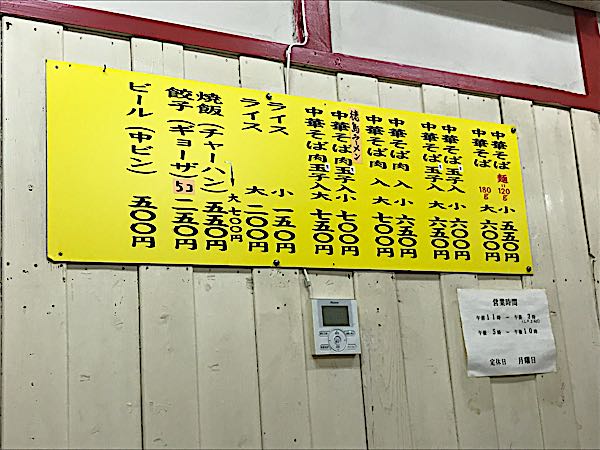 中華そば 麺120g 小 五五〇円
中華そば 180g 大 六〇〇円
中華そば玉子入 小 六〇〇円
中華そば玉子入 大 六五〇円
中華そば肉 入 小 六五〇円
中華そば肉 入 大 七〇〇円
徳島ラーメン
中華そば肉玉子入 小 七〇〇円
中華そば肉玉子入 大 七五〇円
ライス 小 一五〇円
ライス 大 二〇〇円
焼飯(チャーハン) 五五〇円
大 七〇〇円
餃子(ギョーザ) 5コ 二五〇円
ビール(中ビン) 五〇〇円
営業時間
午前11時 - 午後
午後 5時 - 午後10時
定休日 月曜日